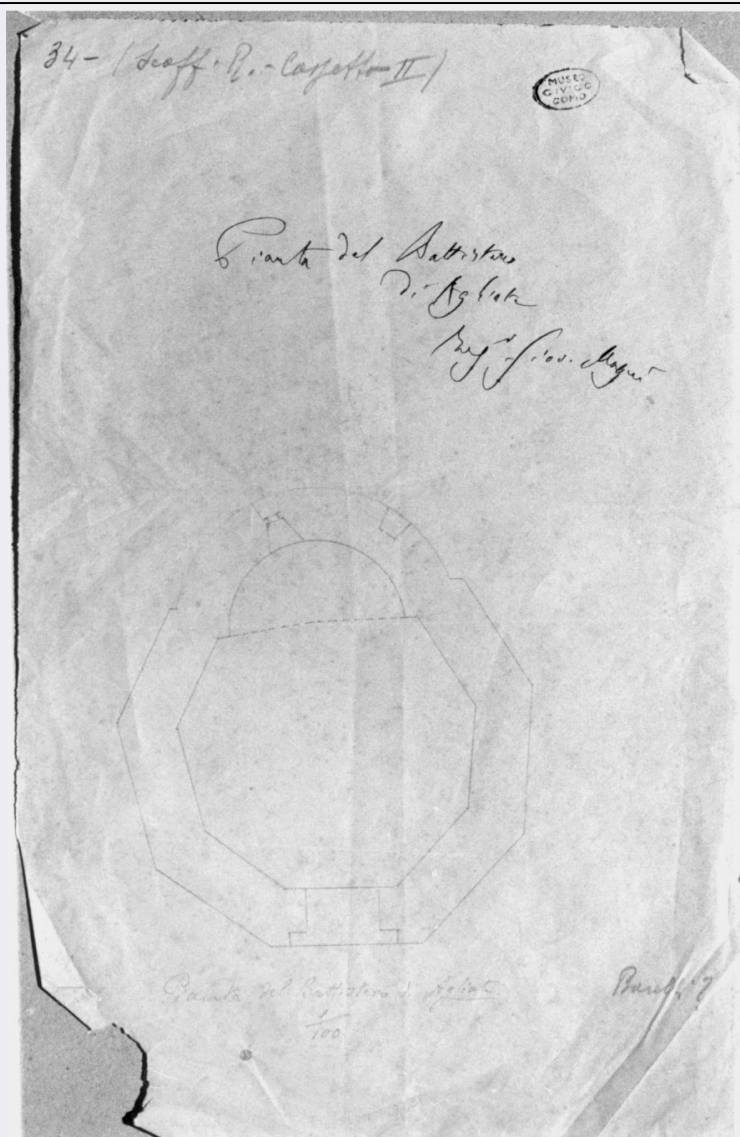 34- (Scaff. R. - Cassetto II)
MUSEO
CIVICO
COMO
Pianta del Battistero
di Agliate
Giov.
Pianta del Battistero di Agliate
1/100